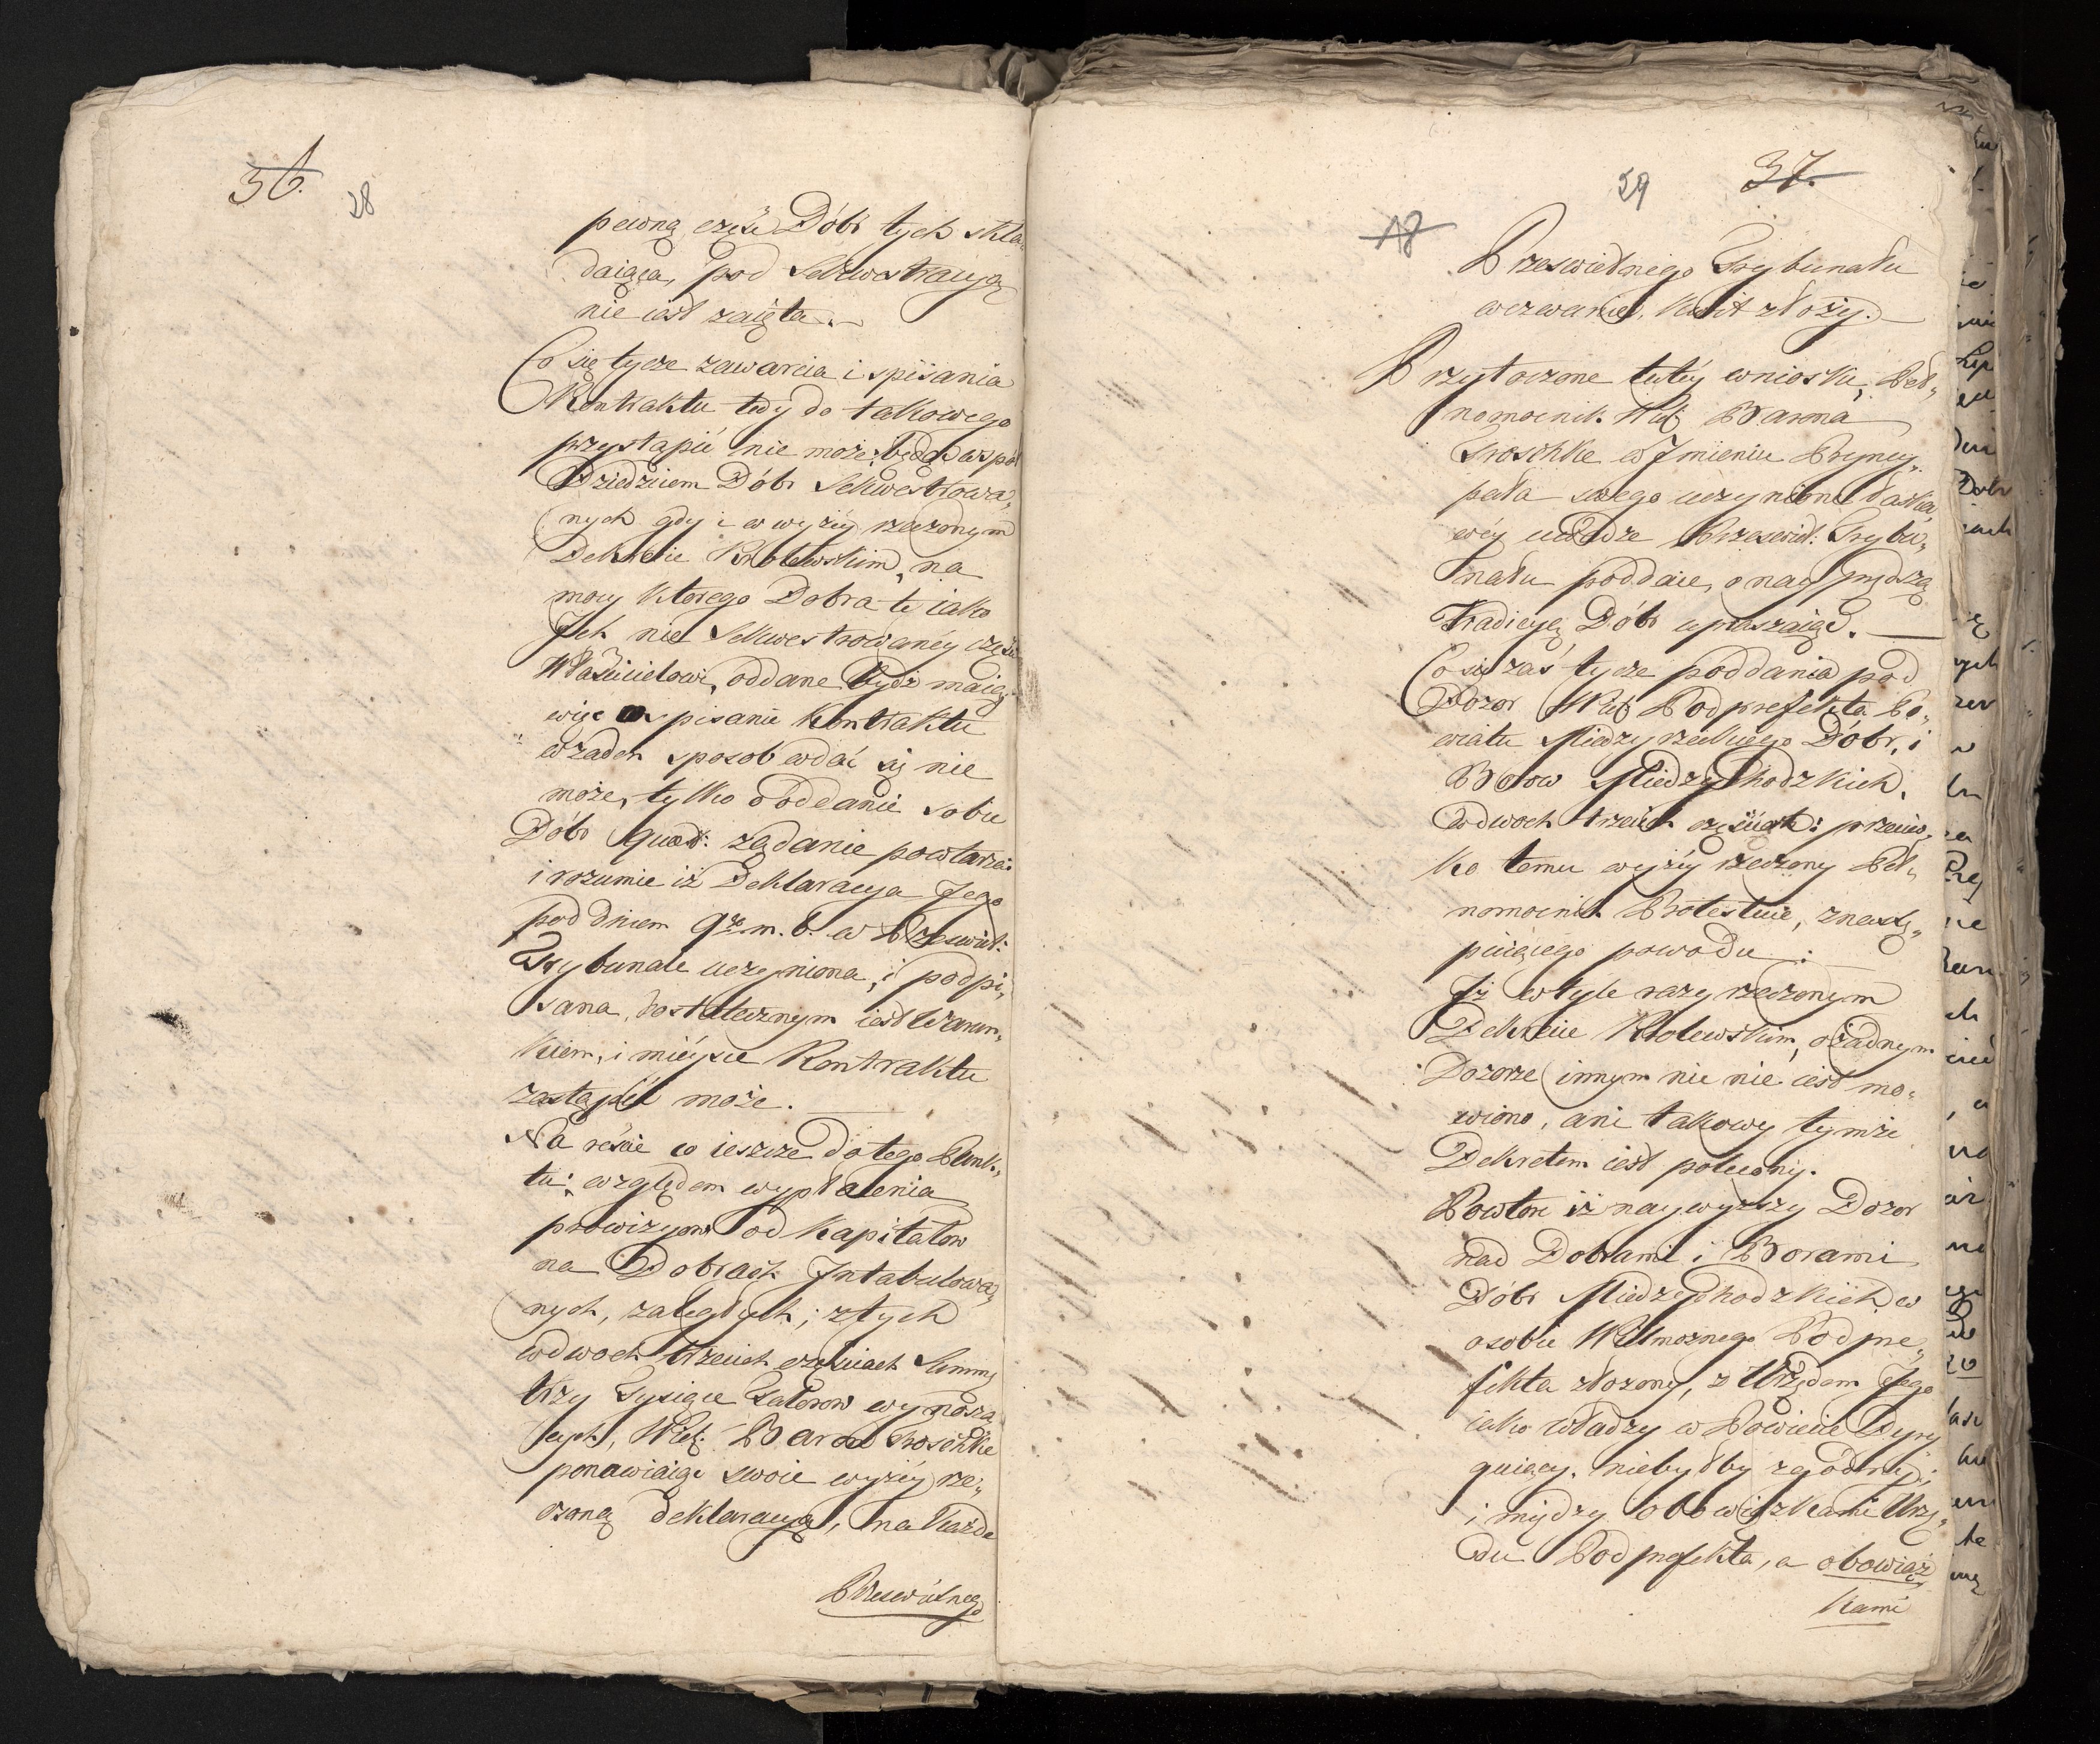 36.
28
pewną część Dóbr tych skła-
daiąca, pod Sekwestracyą
nie iest zaięta. —
Co się tycze zawarcia i spisania
Kontraktu tedy do takowego
przystąpić nie może, będąc współ
Dziedzicem Dóbr Sekwestrowa„
nych gdy i w wyżéy rzeczonym
Dekrecie Krolewskim, na
mocy ktorego Dobra te iako
Jch nie Sekwestrowanéy części
Właścicielowi, oddane bydz maią,
więc spisanie Kontraktu
w żaden sposob wdać się nie
może, tylko o oddanie sobie
Dóbr quaest: żądanie powtarza
i rozumie iż Deklaracya Jego
pod dniem 9go m. b. w Przeswiet:
Trybunale uczyniona, i podpi„
sana, dostatecznym iest Warun„
kiem, i mieysce Kontraktu
zastąpić może. —
Na reście co ieszcze do tego Punk„
tu: względem wypłacenia
prowizyow od Kapitałow
na Dobrach Jntabulowa„
nych, zaległych; z tych
w dwoch trzecich częściach Summę
trzy Tysiące Talerow wynoszą
cych, Wiel. Baron Troschke
ponawiaiąc swoie wyżéy rze„
czoną deklaracyą, na każde
Prześwietnego
37.
29
18
Przeswietnego Trybunału
wezwanie, Kwit złoży. —
Przytoczone tutéy wnioski, Peł„
nomocnik Wel. Barona
Troschke w Jmieniu Pryncy„
pała swego uczynione łaska
wéy uwadze Przeswiet: Trybu„
nału poddaie, o nayprędszą
Tradicyą Dóbr upraszaiąc. —
Co się zaś tycze poddania pod
Dozor Wel. Podprefekta Po„
wiatu Miedzyrzeckiego Dóbr, i
Borow Miedzychodzkich,
w dwoch trzecich częściach: przeciw„
ko temu wyżéy rzeczony Peł„
nomocnik Protestuie, z nastę„
puiącego powodu: —
Jż w tyle razy rzeczonym
Dekrecie Krolewskim, o żadnym
Dozorze innym nic nie iest mo„
wiono, ani takowy tymże
Dekretem iest polecony.
Powtore iż naywyższy Dozor
nad Dobrami i Borami
Dóbr Miedzychodzkich, w
osobie Wielmożnego Podpre„
fekta złożony, z Urzędem Jego
iako władzy w Powiecie Dyry
guiący. niebyłby zgodny;
i między obowiązkami Urzę„
du Podprefekta, a obowiąz
kami